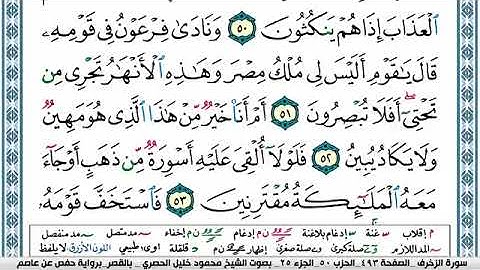 ٱلْعَذَابَ إِذَا هُمْ يَنكُثُونَ ٥٠ وَنَادَىٰ فِرْعَوْنُ فِى قَوْمِهِۦ
قَالَ يَٰقَوْمِ أَلَيْسَ لِى مُلْكُ مِصْرَ وَهَٰذِهِ ٱلْأَنْهَٰرُ تَجْرِى مِن
تَحْتِىٓ أَفَلَا تُبْصِرُونَ ٥١ أَمْ أَنَا۠ خَيْرٌ مِّنْ هَٰذَا ٱلَّذِى هُوَ مَهِينٌ
وَلَا يَكَادُ يُبِينُ ٥٢ فَلَوْلَآ أُلْقِىَ عَلَيْهِ أَسْوِرَةٌ مِّن ذَهَبٍ أَوْ جَآءَ
مَعَهُ ٱلْمَلَٰٓئِكَةُ مُقْتَرِنِينَ ٥٣ فَٱسْتَخَفَّ قَوْمَهُۥ
م إقلاب غنة إدغام بلاغنة ن م إدغام ن م إخفاء مد متصل مد منفصل
المد اللازم صلة كبرى صلة صغرى إظهار ن م قلقلة اوى طبيعي اللون الأزرق لا يلفظ
سورة الزخرف _ الصفحة ٤٩٣ _ الحزب ٥٠ _ الجزء ٢٥ _ بصوت الشيخ محمود خليل الحصري _ بالقصر_برواية حفص عن عاصم